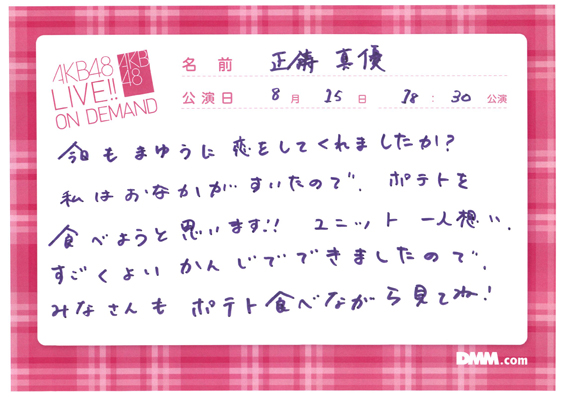 AKB48
LIVE!!
ON DEMAND
AKB
48
名前 正鋳真優
公演日 8月 15日 18:30 公演
今日もまゆうに恋をしてくれましたか?
私はおなかがすいたので、ポテトを
食べようと思います!! ユニット一人想い、
すごくよいかんじでできましたので、
みなさんもポテト食べながら見てね!
DMM.com